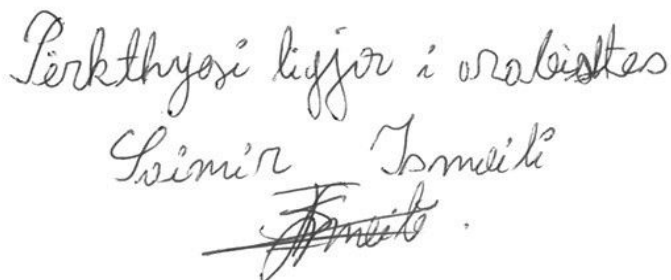 Përkthyesi ligjor i arabishtes
Soimir Ismaili
Ismaili